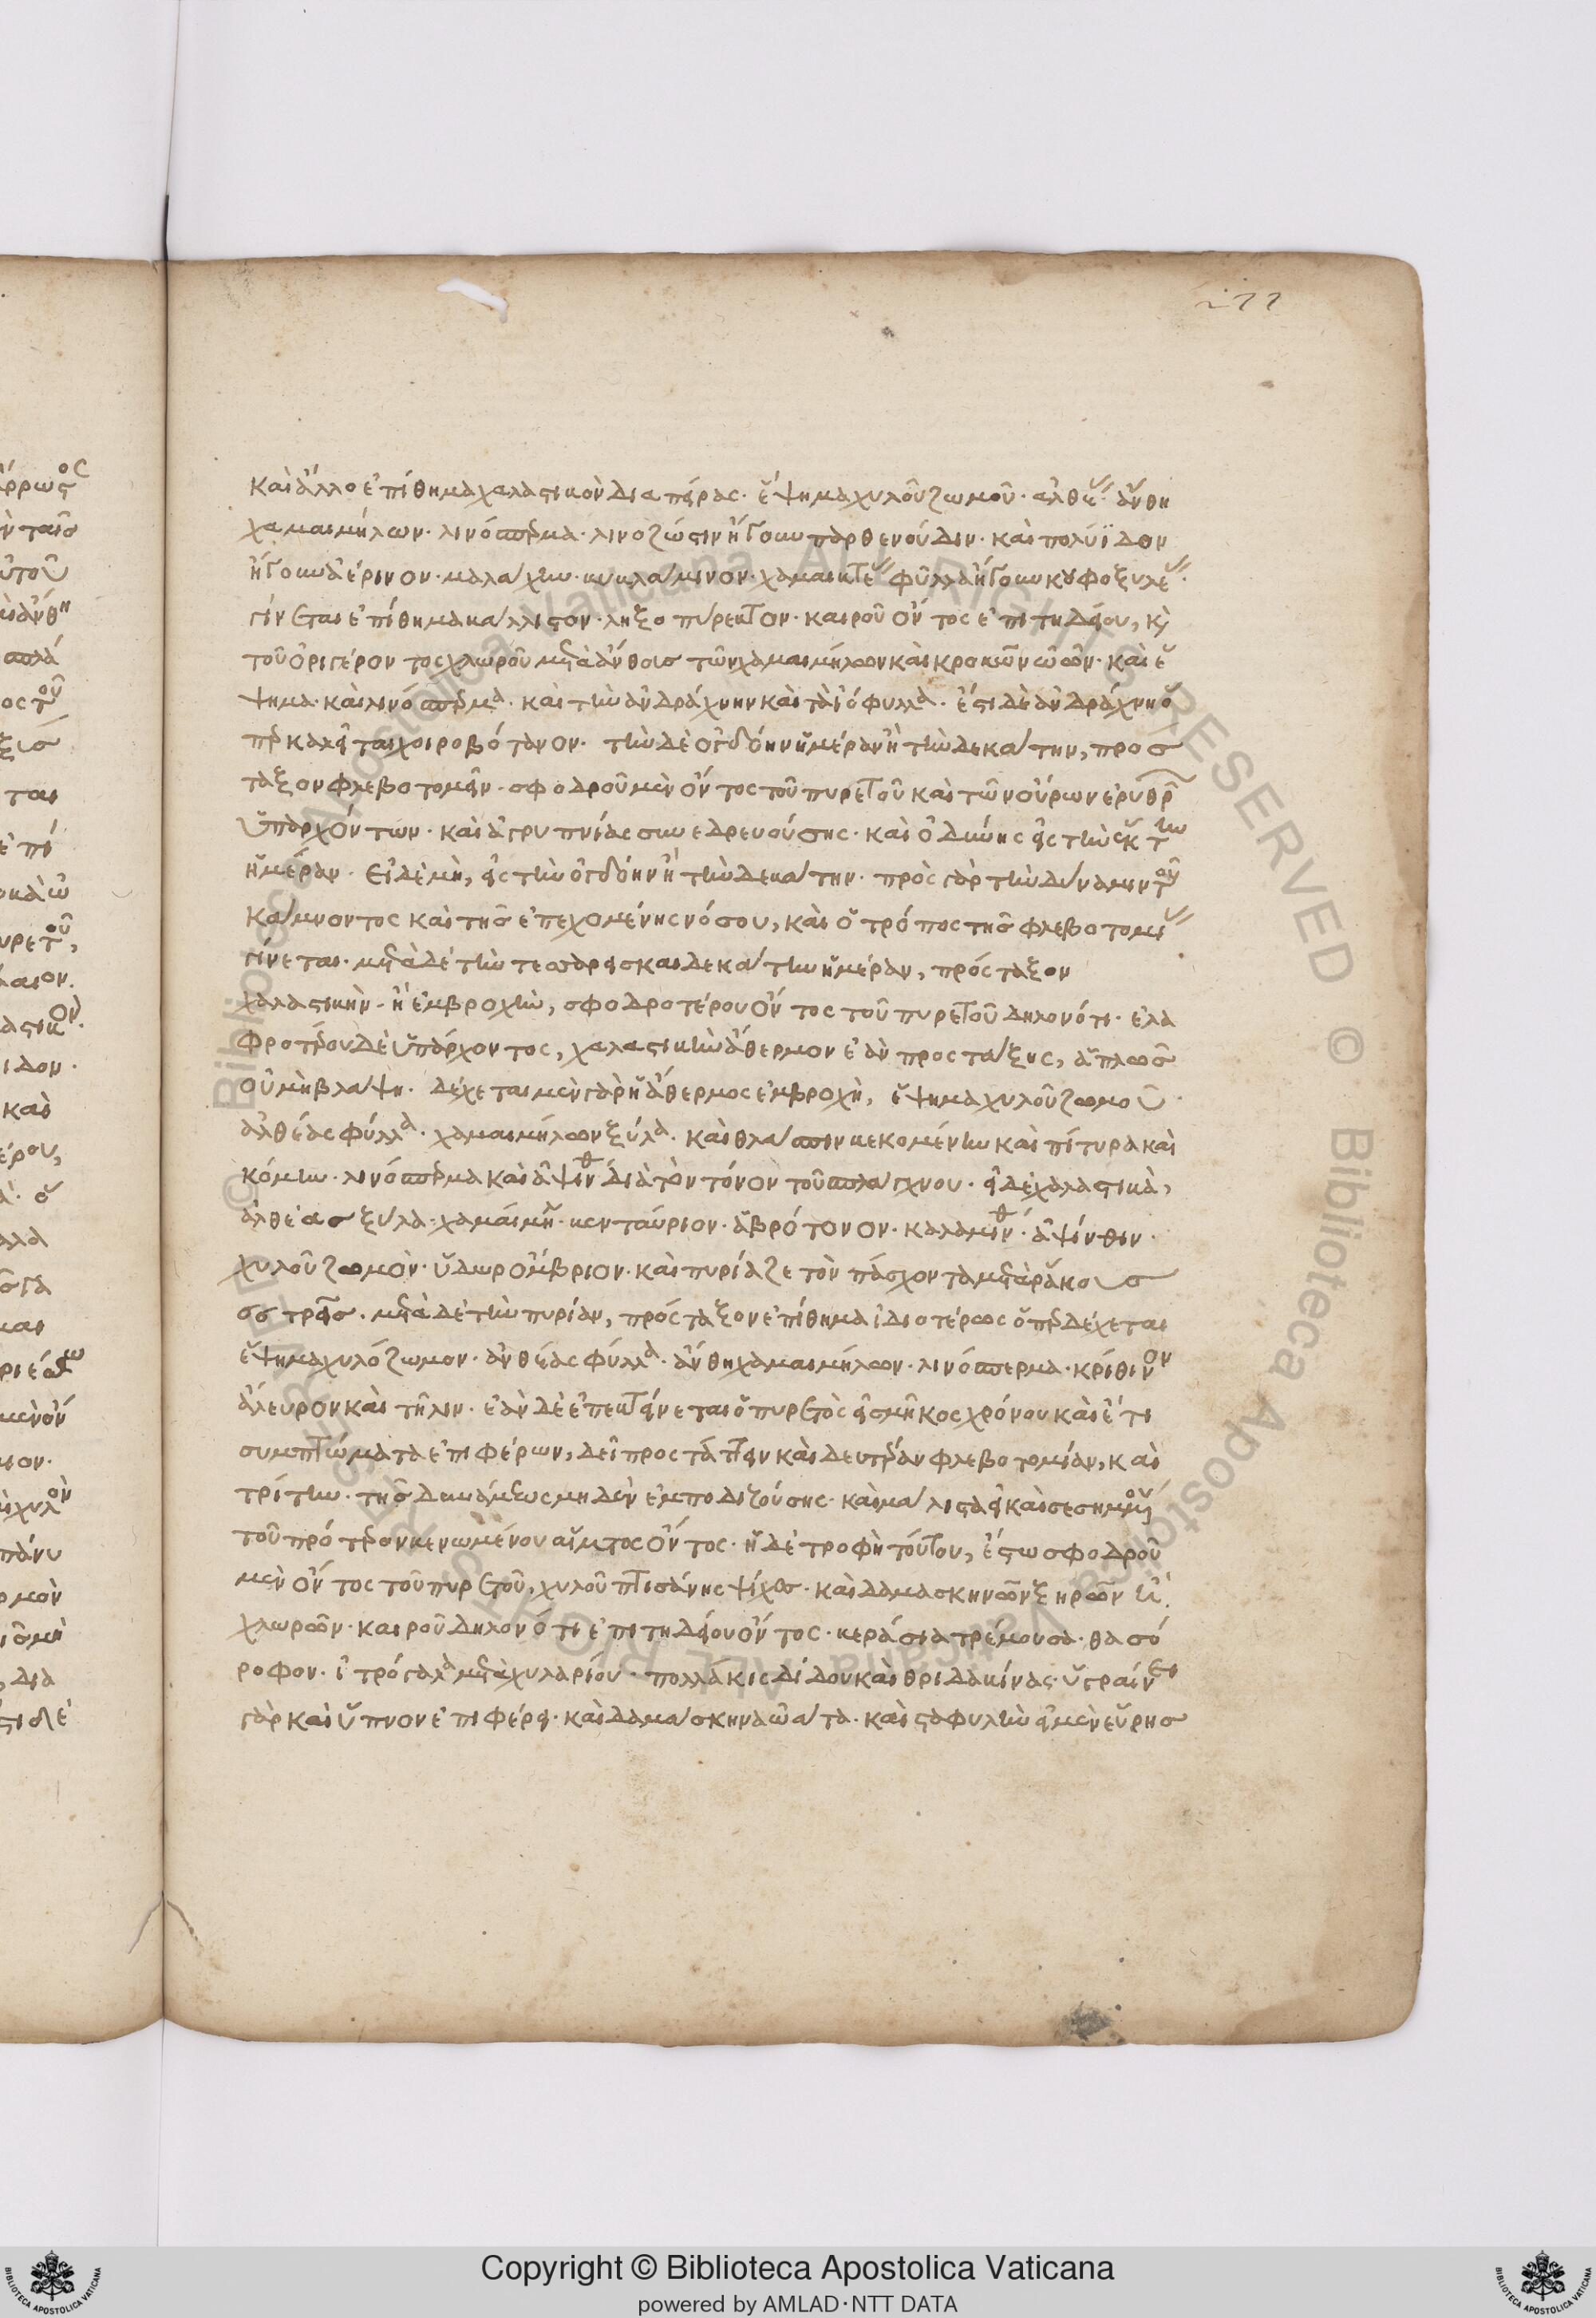 277
καὶ ἄλλο ἐπίθημα χαλαστικὸν δια πείρας· ἕψημα χυλοῦ ζωμοῦ· ἀλθέ· ἄνθη
χαμαιμήλων· λινόσπερμα· λινοζώστιν ἤγουν παρθενούδιν· καὶ πολύϊδον
ἤγουν ἀέρινον· μαλάχην· κυκλάμινον· χαμαιακτέ φύλλα ἤγουν κουφοξυλέ·
γίνεται ἐπίθημα κάλλιστον· ληξοπύρεκτον· καιροῦ ὄντος ἐπιτηδείου, καὶ
τοῦ ὀριγέροντος χλωροῦ μετὰ ἄνθοισ τῶν χαμαιμήλων καὶ κροκῶν ὠῶν· καὶ ἕ
ψημα· καὶ λινόσπερμα· καὶ τὴν ἀνδράχνην καὶ τὰ ἰόφυλλα· ἔστι δὲ ἀνδράχνη ὅ
περ καλεῖται χοιροβότανον· τὴν δὲ ὀγδόην ἡμέραν ἢ τὴν δεκάτην, προσ
τάξον φλεβοτομεῖν· σφοδροῦ μὲν ὄντος τοῦ πυρετοῦ καὶ τῶν οὔρων ἐρυθρ
ὑπαρχόντων· καὶ ἀγρυπνίας συνεδρευούσης· καὶ ὀδύνης εἰς τὴν ἕκτην
ἡμέραν· εἰ δὲ μὴ, εἰς τὴν ὀγδόην ἢ τὴν δεκάτην· πρὸς γὰρ τὴν δύναμιν τοῦ
κάμνοντος καὶ τῆς ἐπεχομένης νόσου, καὶ ὁ τρόπος τῆς φλεβοτομί
γίνεται· μετὰ δὲ τὴν τεσσαρεισκαιδεκάτην ἡμέραν, πρόσταξον
χαλαστικὴν· ἢ ἐμβροχὴν, σφοδροτέρου ὄντος τοῦ πυρετοῦ δηλονότι· ἐλα
φροτέρου δὲ ὑπάρχοντος, χαλαστικὴν ἄθερμον ἐὰν προστάξης, ἁπλῶς
οὐ μὴ βλάψη· δέχεται μὲν γὰρ ἡ ἄθερμος ἐμβροχὴ, ἕψημα χυλοῦ ζωμοῦ·
ἀλθέας φύλλα· χαμαιμήλων ξύλα· καὶ θλάσπιν κεκομένην καὶ πίτυρα καὶ
κόμην· λινόσπερμα καὶ ἀψινθ διὰ τὸν τόνον τοῦ σπλάγχνου· εἰ δὲ χαλαστικὰ,
ἀλθέασ ξύλα· χαμαίμη· κενταύριον· ἀβρότονον· καλαμινθ· ἀψίνθιν·
χυλοῦ ζωμὸν· ὕδωρ ὄμβριον· καὶ πυρίαζε τὸν πάσχοντα μετὰ ῥάκουσ
μετὰ δὲ τὴν πυρίαν, πρόσταξον ἐπίθημα ἰδιοτέρως ὅπερ δέχεται
ἕψημα χυλόζωμον· ἀνθέας φύλλα· ἄνθη χαμαιμήλων· λινόσπερμα· κρίθινον
ἄλευρον καὶ τῆλιν· ἐὰν δὲ ἐπεκτείνεται ὁ πυρετὸς εἰς μῆκος χρόνου καὶ ἔτι
συμπτώματα ἐπιφέρων, δεῖ προστάττειν καὶ δευτέραν φλεβοτομίαν, καὶ
τρίτην· τῆς δυνάμεως μηδὲν ἐμποδιζούσης· καὶ μάλιστα εἰ καὶ σεσημμένου
τοῦ πρότερον κενωμένου αἵματος ὄντος· ἡ δὲ τροφὴ τούτου, ἔστω σφοδροῦ
μὲν ὄντος τοῦ πυρετοῦ, χυλοῦ πτισάνης ψίχες· καὶ δαμασκηνῶν ξηρῶν ἢ
χλωρῶν· καιροῦ δηλονότι ἐπιτηδείου ὄντος· κεράσια τρέμουσα· θασό
ροφον· ἰτρόγαλα μετὰ χυλαρίου· πολλάκις δίδου καὶ θριδακίνας· ὑγραίνει
γὰρ καὶ ὕπνον ἐπιφέρει· καὶ δαμάσκηνα ὠάτα· καὶ σταφυλὴν εἰ μὲν εὕρησ
Copyright © Biblioteca Apostolica Vaticana
powered by AMLAD·NTT DATA